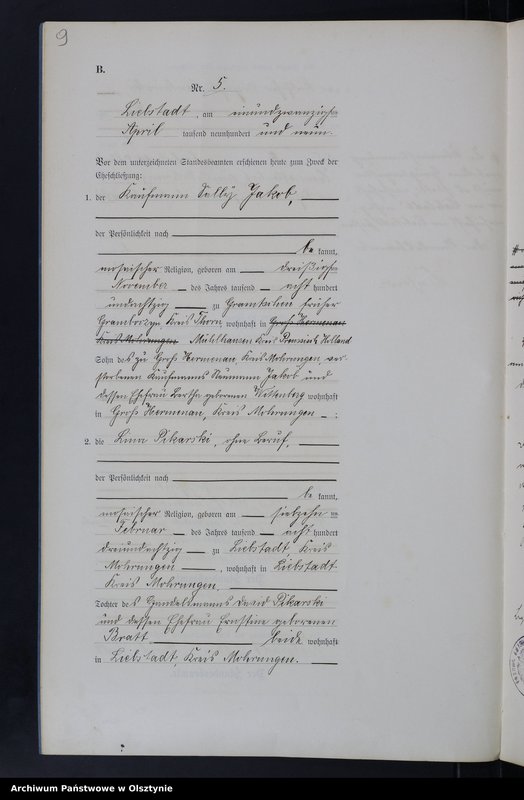 9
B.
Nr. 5.
Liebstadt, am einundzwanzigsten
April tausend neunhundert und neun.
Vor dem unterzeichneten Standesbeamten erschienen heute zum Zweck der
Eheschließung:
1. der Kaufmann Sally Jakob,
der Persönlichkeit nach
be kannt,
mosaischer Religion, geboren am dreißigsten
November des Jahres tausend acht hundert
undachtzig zu früher
Kreis Thorn, wohnhaft in Groß Hermenau
Kreis Mohrungen Mühlhausen Kreis Preußisch Holland
Sohn des zu Groß Hermenau, Kreis Mohrungen ver-
storbenen Kaufmanns Neumann Jakob und
dessen Ehefrau Bertha geborenen Wittenberg wohnhaft
in Groß Hermenau, Kreis Mohrungen :
2. die Lina Pikarski, ohne Beruf,
der Persönlichkeit nach
be kannt,
mosaischer Religion, geboren am siebzehnten
Februar des Jahres tausend acht hundert
dreiundachtzig zu Liebstadt, Kreis
Mohrungen, wohnhaft in Liebstadt
Kreis Mohrungen,
Tochter des Handelsmanns David Pikarski
und dessen Ehefrau Ernstine geborenen
Bratt beide wohnhaft
in Liebstadt, Kreis Mohrungen.
Archiwum Państwowe w Olsztynie